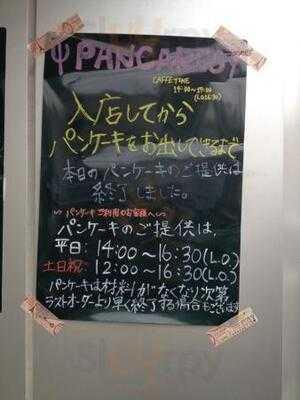 PANCAKE
CAFFE TIME
14:00〜17:00
入店してから
パンケーキをお出しできるまで
本日のパンケーキのご提供は
終了しました。
パンケーキご利用のお客様へ
パンケーキのご提供は、
平日: 14:00〜16:30(L.O.)
土日祝: 12:00〜16:30(L.O.)
パンケーキは材料がなくなり次第
ラストオーダーより早く終了する場合もございます